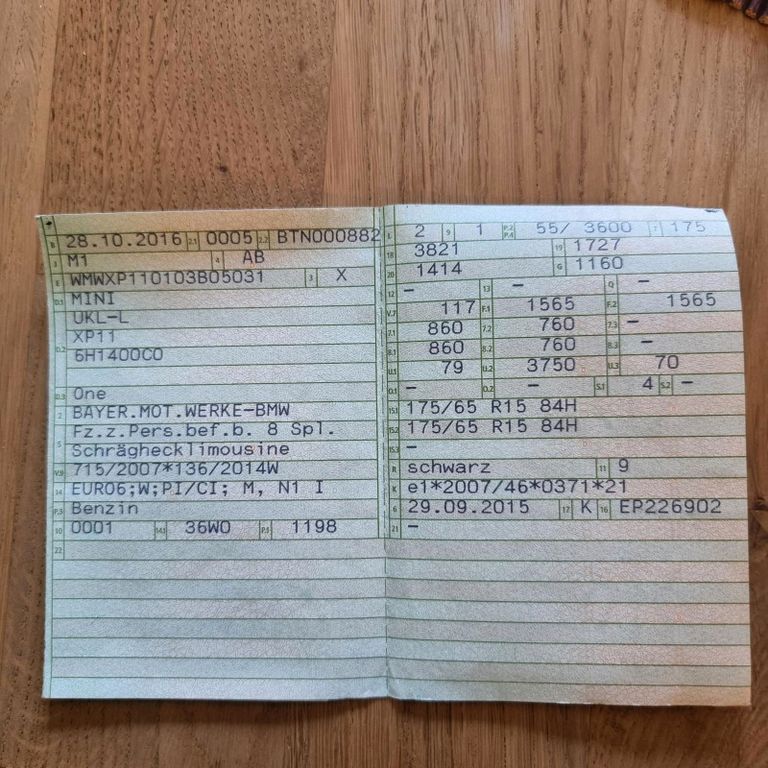 B 28.10.2016 2.1 0005 2.2 BTN000882
J M1 4 AB
E WMWXP110103B05031 3 X
D.1 MINI
UKL-L
D.2 XP11
6H1400C0
D.3 One
2 BAYER.MOT.WERKE-BMW
Fz.z.Pers.bef.b. 8 Spl.
5 Schräghecklimousine
V.9 715/2007*136/2014W
14 EURO6;W;PI/CI; M, N1 I
P.3 Benzin
10 0001 14.1 36W0 P.1 1198
22
L 2 9 1 P.2 P.4 55/ 3600 T 175
18 3821 19 1727
20 1414 G 1160
12 – 13 – Q –
V.7 117 F.1 1565 F.2 1565
7.1 860 7.2 760 7.3 –
8.1 860 8.2 760 8.3 –
U.1 79 U.2 3750 U.3 70
O.1 – O.2 – S.1 4 S.2 –
15.1 175/65 R15 84H
15.2 175/65 R15 84H
15.3 –
R schwarz 11 9
K e1*2007/46*0371*21
6 29.09.2015 17 K 16 EP226902
21 –